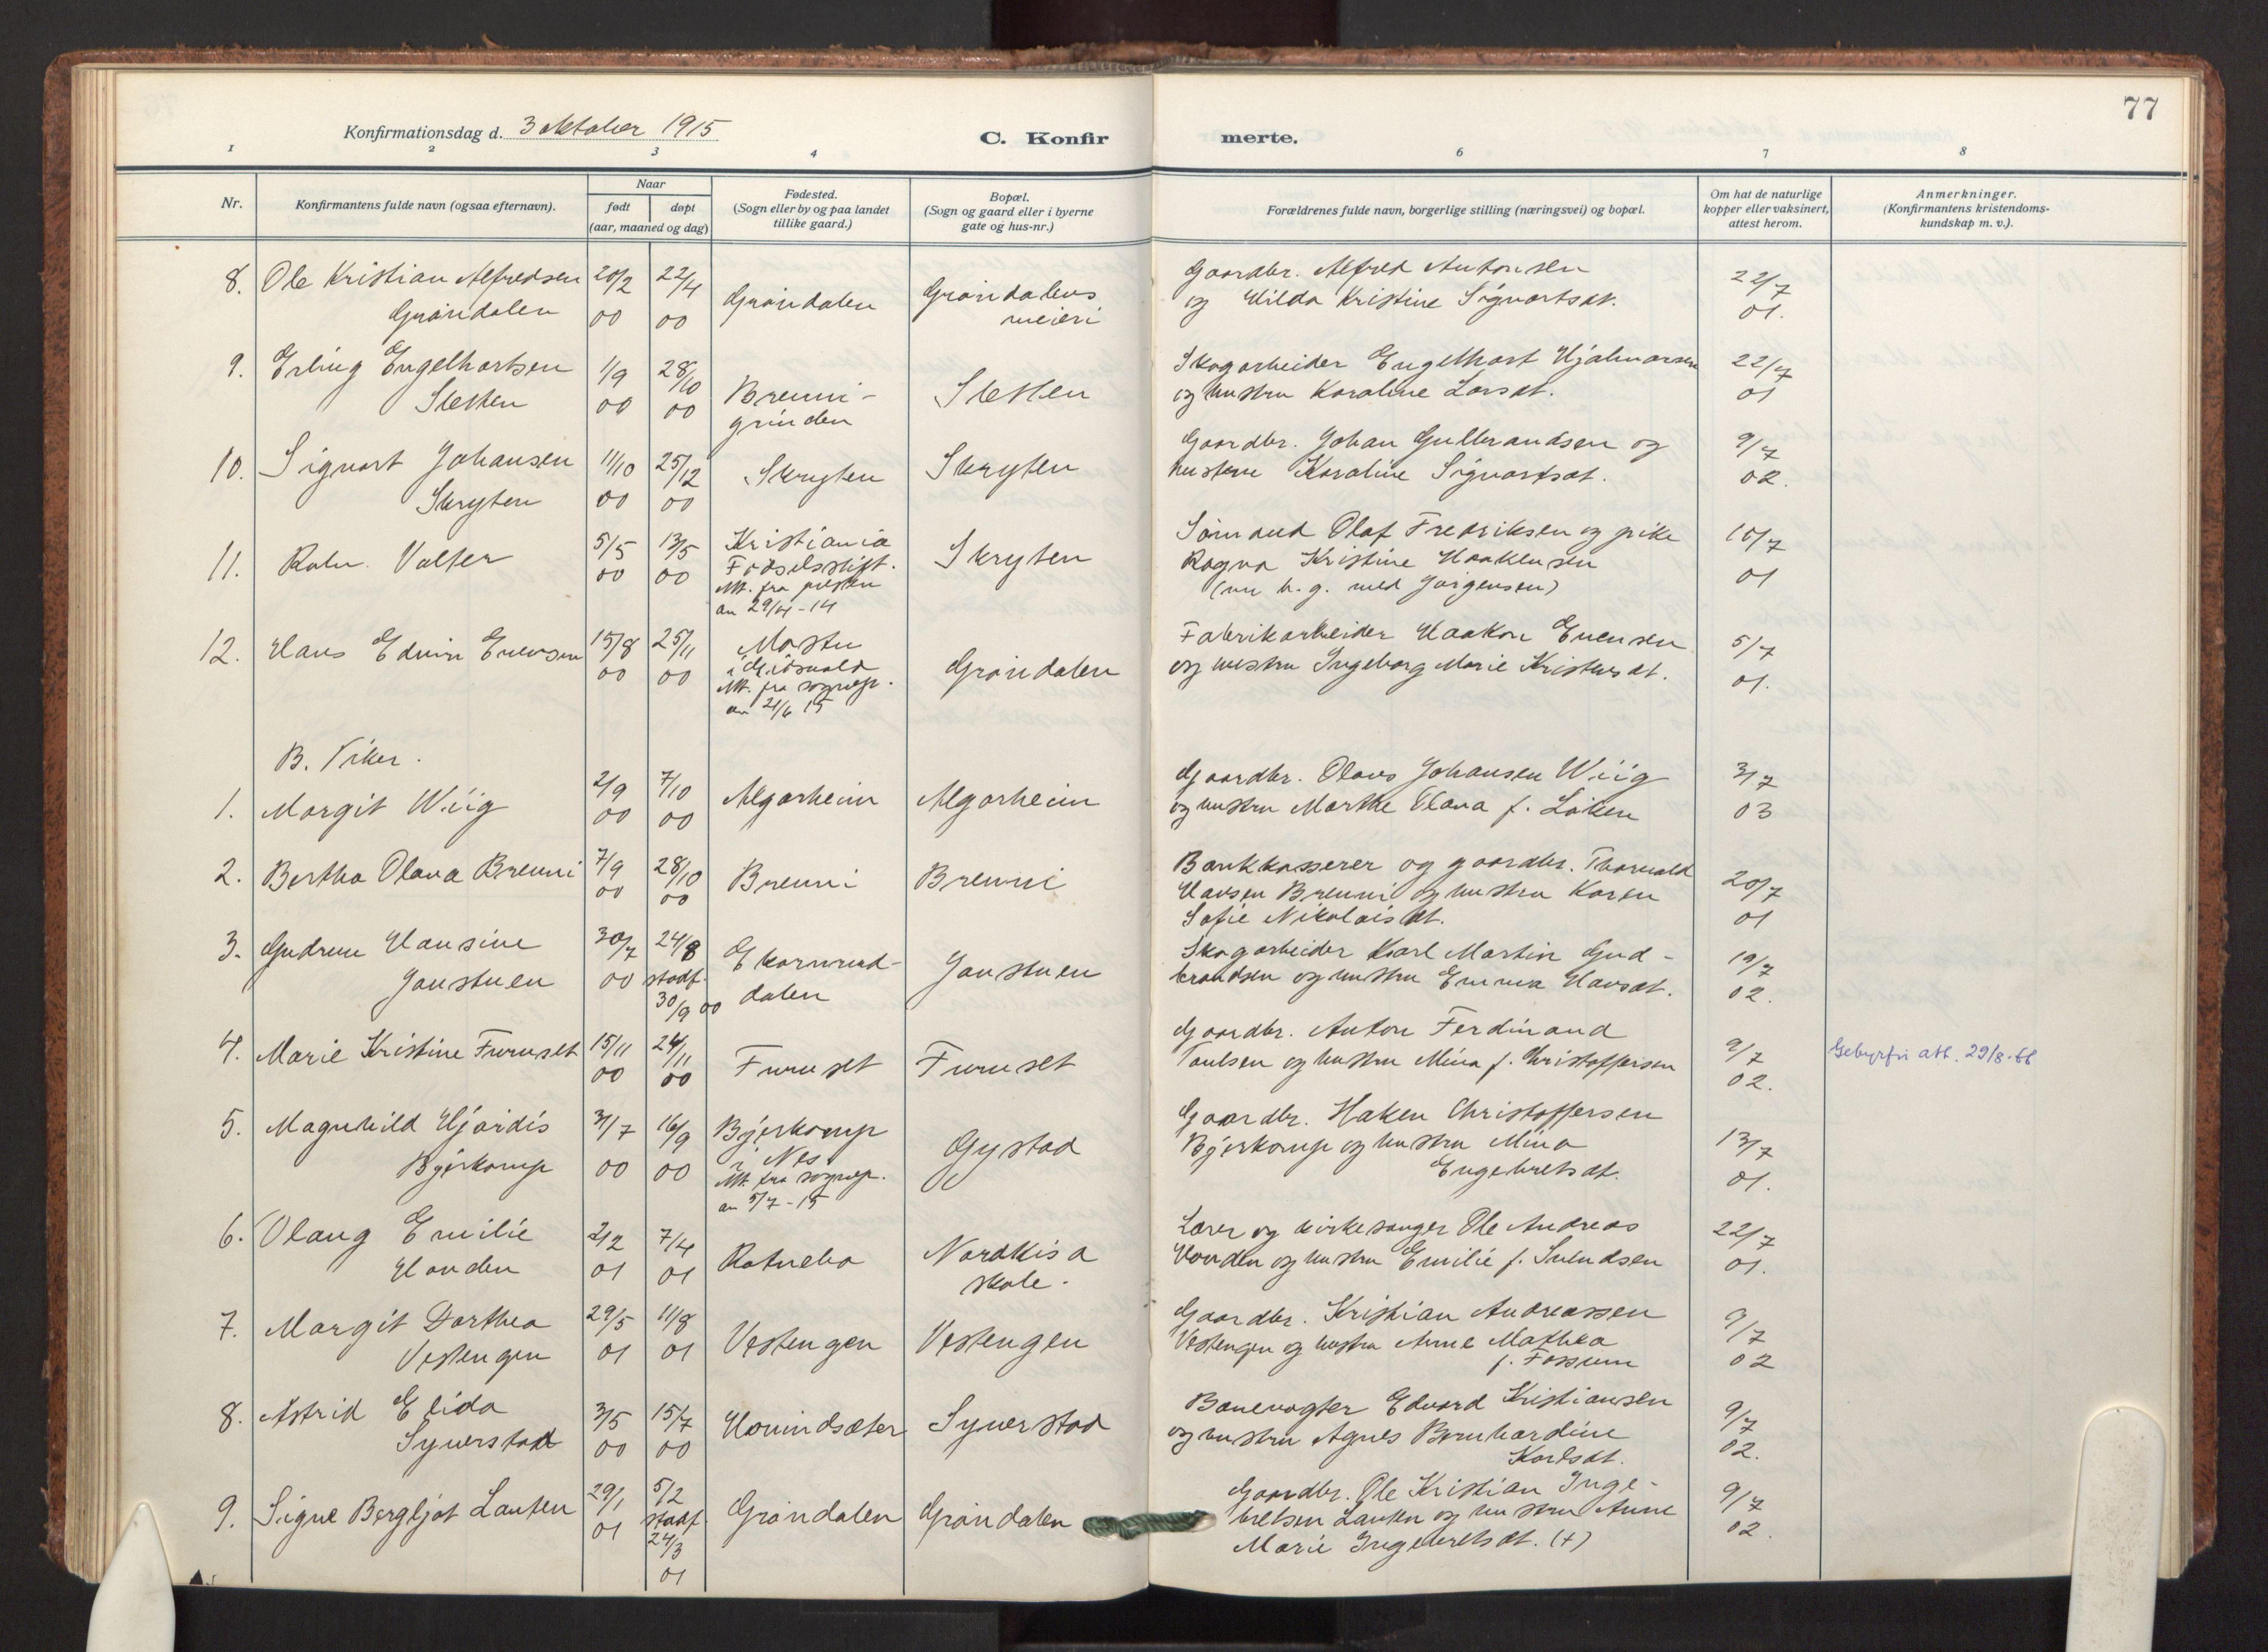 77
Konfirmationsdag d. 3 oktober 1915
C. Konfir merte.
1 2 3 4 6 7 8
Nr.
Konfirmantens fulde navn (ogsaa efternavn).
Naar
født døpt
(aar, maaned og dag)
Fødested.
(Sogn eller by og paa landet
tillike gaard.)
Bopæl.
(Sogn og gaard eller i byerne
gate og hus-nr.)
Forældrenes fulde navn, borgerlige stilling (næringsvei) og bopæl.
Om hat de naturlige
kopper eller vaksinert,
attest herom.
Anmerkninger.
(Konfirmantens kristendoms-
kundskap m. v.).
8. Ole Kristian Alfredsen 20/2 22/4 Grøndalen Grøndalens Gaardbr. Alfred Antonsen 22/7
Grøndalen 00 00 meieri og Hilda Kristine Sigvartsdt. 01.
9. Erling Engelhartsen 1/9 28/10 Brenni- Sletten Skogarbeider Engelhart Hjalmarsen 22/7
Sletten 00 00 grinden og hustru Karoline Larsdt. 01
10. Sigvart Johansen 11/10 25/12 Skryten Skryten Gaardbr. Johan Gulbrandsen og 9/7
Skryten 00 00 hustru Karoline Sigvartsdt. 02.
11. Valter 5/5 13/5 Kristiania Skryten Sjømand Olaf Fredriksen og pike 10/7
00 00 Fødselsstift. Ragna Kristine Haakensen 01
Att. fra presten (nu h. g. med Jørgensen)
av 29/4-14
12. Hans Edvin Evensen 15/8 25/11 Mostu Grøndalen Fabrikarbeider Haakon Evensen 5/7
00 00 i Eidsvold og hustru Ingeborg Marie Kristensdt. 01.
Att. fra sognepr.
av 21/6 15
B. Piker.
1. Margit Wiig 2/9 7/10 Algarheim Algarheim Gaardbr. Olaus Johansen Wiig 3/7
00 00 og hustru Marthe Olava f. Løken 03
2. Bertha Olava Brenni 7/9 28/10 Brenni Brenni Bankkasserer og gaardbr. Thorvald 20/7
00 00 Hansen Brenni og hustru Karen 01
Sofie Nikolaisdt.
3. Gudrun Hansine 30/7 24/8 Ekornrud- Jonstuen Skogarbeider Karl Martin Gud- 19/7
Jonstuen 00 stadf. dalen brandsen og hustru Emma Hansdt. 02.
30/9 00
4. Marie Kristine Furuset 15/11 24/11 Furuset Furuset Gaardbr. Anton Ferdinand 9/7 Gebyrfri att. 29/8-66
00 00 Paulsen og hustru Mina f. Kristoffersen 02.
5. Magnhild Hjørdis 31/7 16/9 Bjerkamp Gystad Gaardbr. Haken Christoffersen 13/7
Bjerkamp 00 00 i Nes. Bjerkamp og hustru Mina 01.
Att. fra sognepr. Engebretsdt.
av 5/7-15
6. Olaug Emilie 2/2 7/4 Nordkisa Lærer og kirkesanger Ole Andreas 22/7
Handen 01 01 skole. Handen og hustru Emilie f. Svendsen 01.
7. Margit Dorthea 29/5 11/8 Vestengen Vestengen Gaardbr. Kristian Andreassen 9/7
Vestengen 01 01 Vestengen og hustru Anne Mathea 02
f. Fossum
8. Astrid Elida 3/5 15/7 Hovindsæter Syverstad Banevogter Edvard Kristiansen 9/7
Syverstad 00 00 og hustru Agnes Bernhardine 02.
Karlsdt.
9. Signe Bergljot Lauten 29/1 5/2 Grøndalen Grøndalen Gaardbr. Ole Kristian Inge- 9/7
01 stadf. bretsen Lauten og hustru Anne 02.
24/3 Marie Ingebretsdt. (+)
01